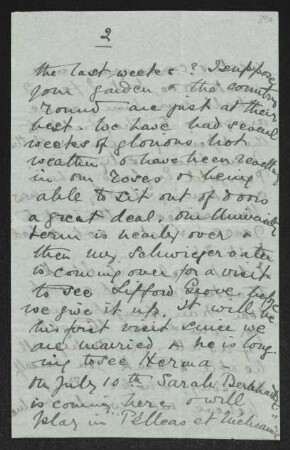 2
the last weeks? I suppose
your garden & the country
round are just at their
best. We have had several
weeks of glorious hot
weather & have been revelling
in our roses & being
able to sit out of doors
a great deal. Our University
term is nearly over &
then my Schwiegervater
is coming over for a visit
to see Lifford Grove before
we give it up. It will be
his first visit since we
are married & he is long-
ing to see Herma –
On July 10th Sarah Bernhardt
is coming here & will
play in "Pélleas et Melisande"